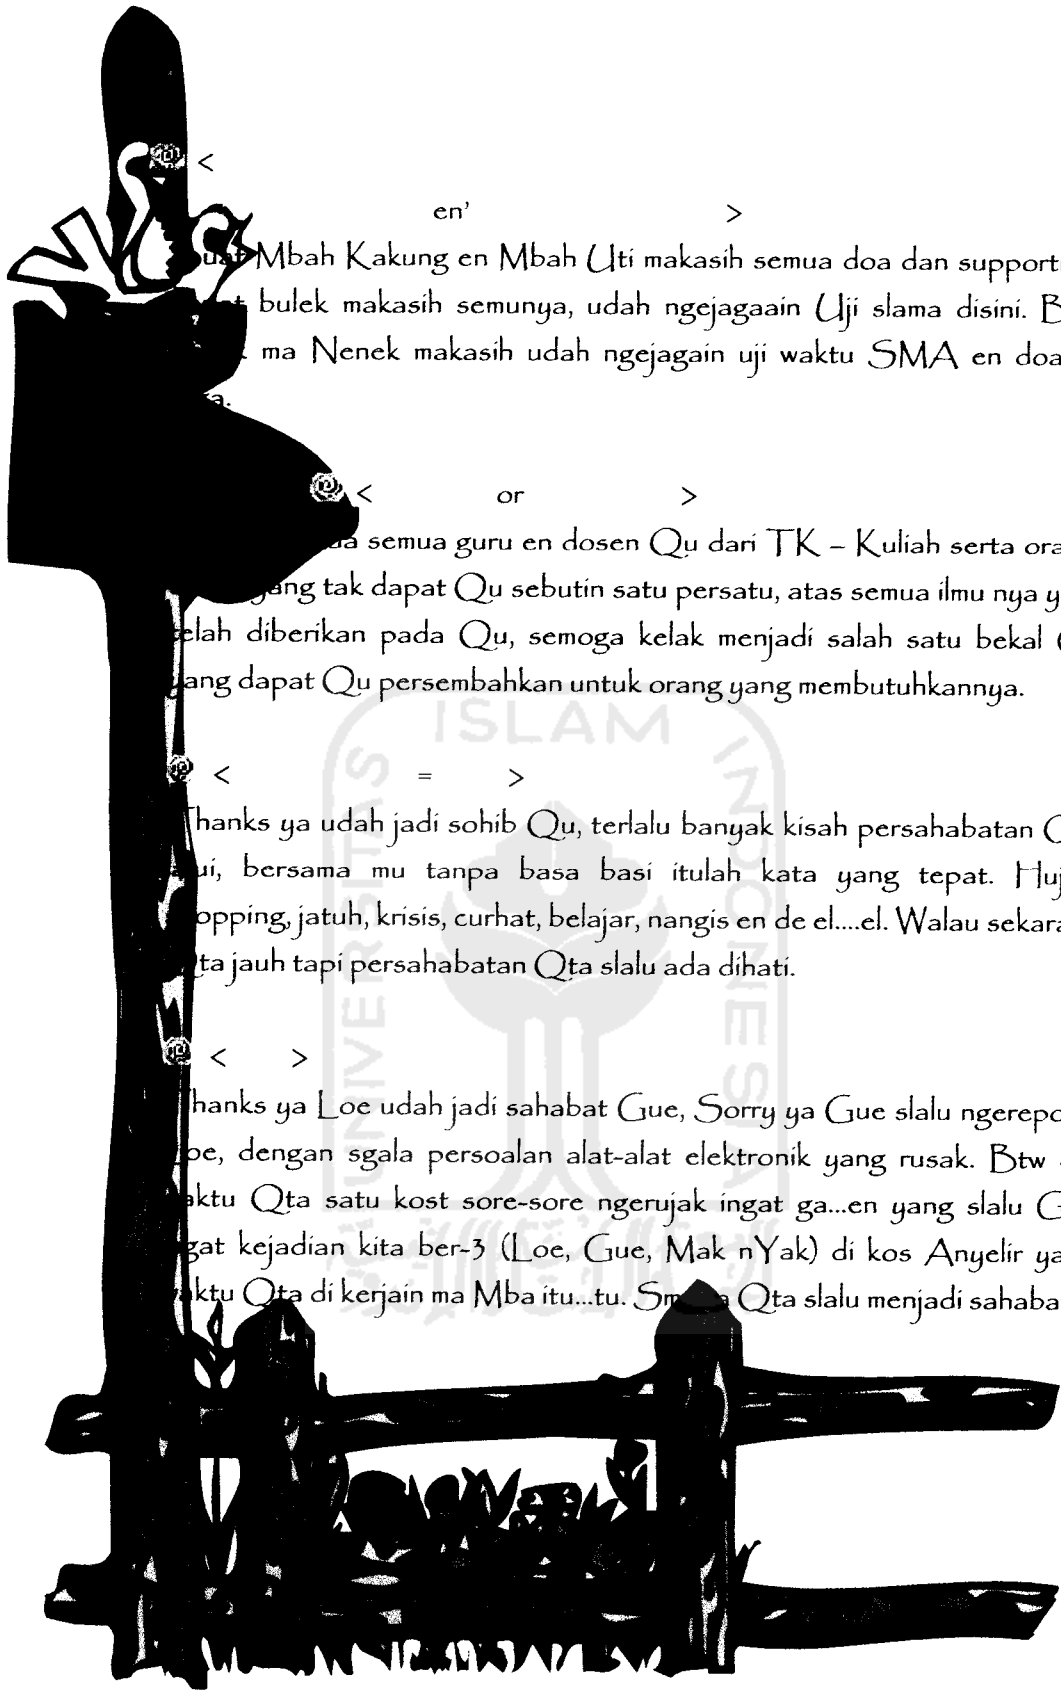 <
en' >
Mbah Kakung en Mbah Uti makasih semua doa dan support
bulek makasih semunya, udah ngejagaain Uji slama disini. B
ma Nenek makasih udah ngejagain uji waktu SMA en doa
a.
< or >
semua guru en dosen Qu dari TK – Kuliah serta ora
yang tak dapat Qu sebutin satu persatu, atas semua ilmu nya y
elah diberikan pada Qu, semoga kelak menjadi salah satu bekal
yang dapat Qu persembahkan untuk orang yang membutuhkannya.
< = >
hanks ya udah jadi sohib Qu, terlalu banyak kisah persahabatan
ui, bersama mu tanpa basa basi itulah kata yang tepat. Huj
opping, jatuh, krisis, curhat, belajar, nangis en de el....el. Walau sekara
ta jauh tapi persahabatan Qta slalu ada dihati.
< >
hanks ya Loe udah jadi sahabat Gue, Sorry ya Gue slalu ngerepo
oe, dengan sgala persoalan alat-alat elektronik yang rusak. Btw
aktu Qta satu kost sore-sore ngerujak ingat ga...en yang slalu G
gat kejadian kita ber-3 (Loe, Gue, Mak nYak) di kos Anyelir ya
aktu Qta di kerjain ma Mba itu...tu. Qta slalu menjadi sahaba
UNIVERSITAS ISLAM INDONESIA